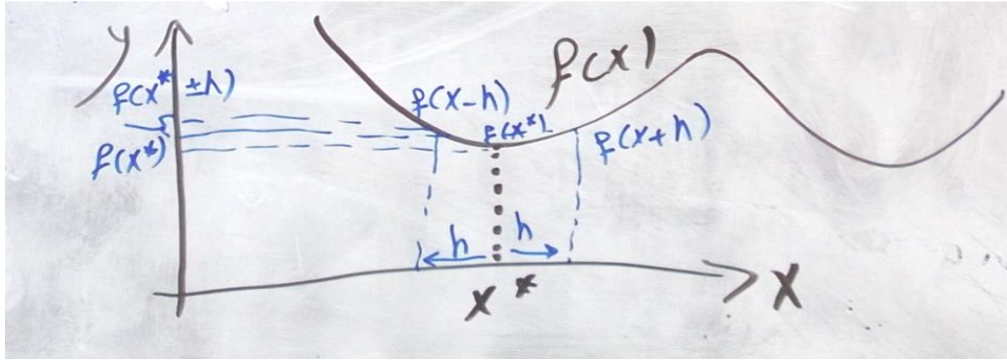 y
f(x)
f(x* ±h)
f(x-h)
f(x*)
f(x+h)
f(x*)
h
h
x*
x